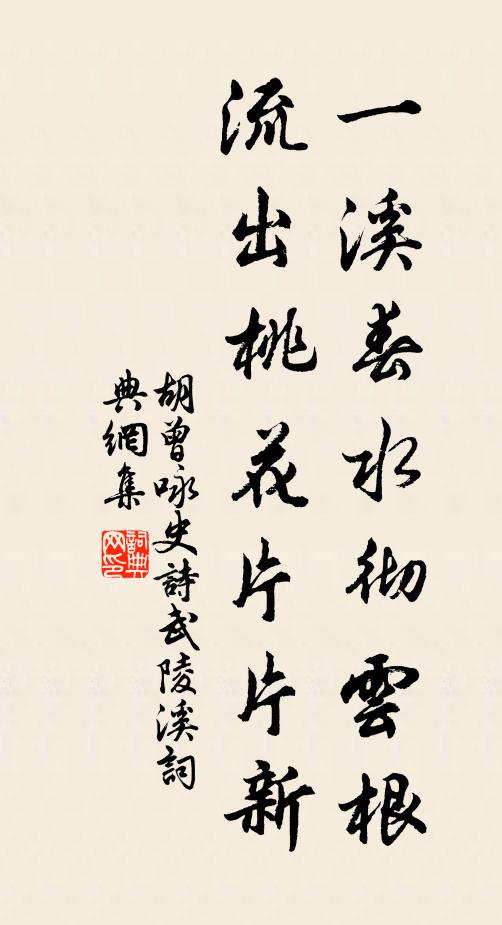 一溪春水彻雲根
流出桃花片片新
胡曾咏史詩武陵溪詞
典網集
詞典
网印